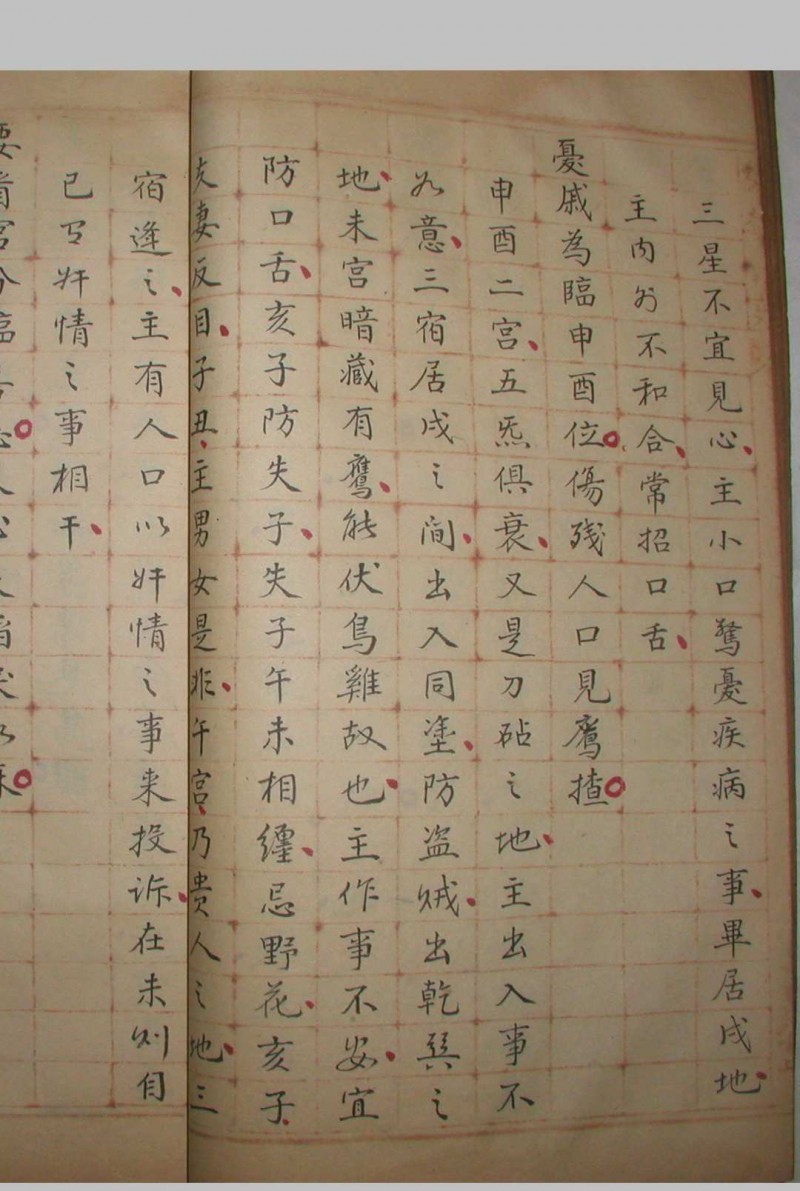 三星不宜見心主小口驚憂疾病之事畢居戌地
主内外不和合常招口舌
憂戚為臨申酉位傷殘人口見鷹揸
申酉二宮五炁俱衰又是刀砧之地主出入事不
如意三宿居戌之间出入同塗防盗贼出乾巽之
地未宮暗藏有鷹能伏鳥雞故也主作事不安宜
防口舌亥子防失子失子午未相纏忌野花亥子
夫妻反目子丑主男女是非午宮乃贵人之地三
宿逢之主有人口以奸情之事来投诉在未则自
己丐奸情之事相干